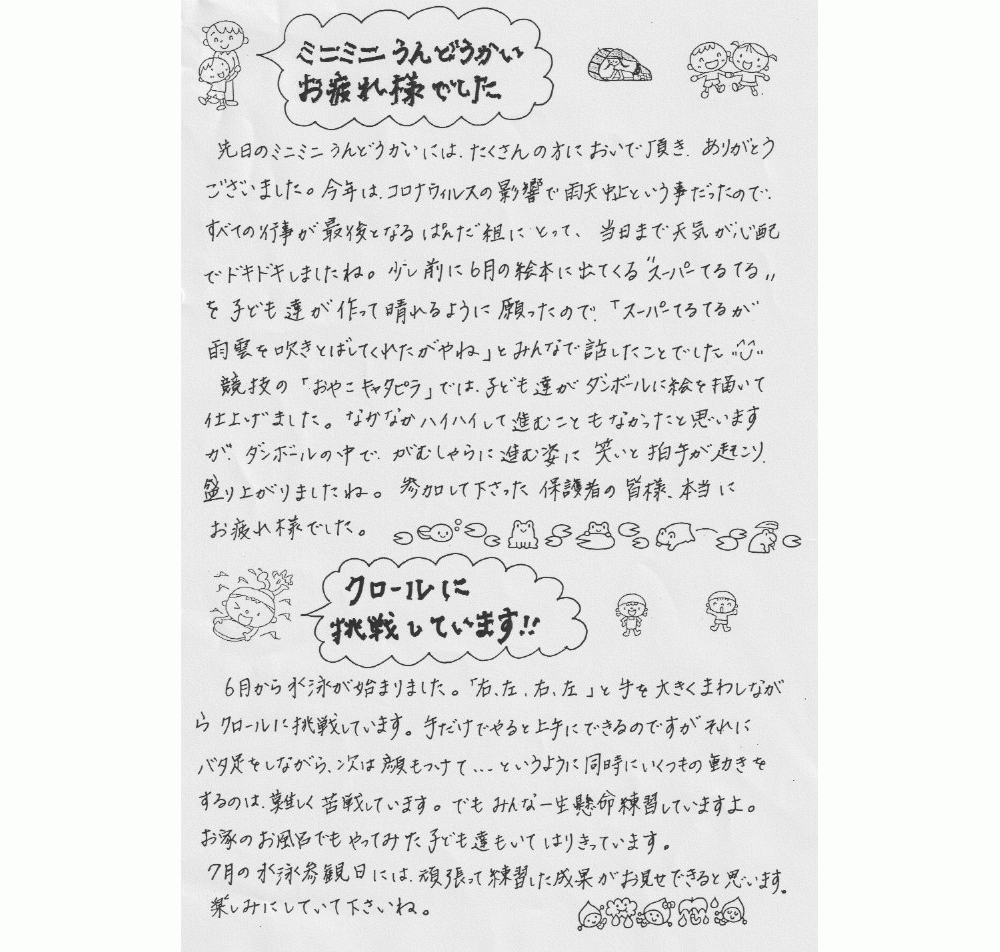 ミニミニうんどうかい
お疲れ様でした
先日のミニミニうんどうかいには、たくさんの方においで頂き、ありがとう
ございました。今年は、コロナウィルスの影響で雨天中止という事だったので、
すべての行事が最後となるぱんだ組にとって、当日まで天気が心配
でドキドキしましたね。少し前に6月の絵本に出てくる“スーパーてるてる”
を子ども達が作って晴れるように願ったので、「スーパーてるてるが
雨雲を吹きとばしてくれたがやね」とみんなで話したことでした
競技の「おやこキャタピラ」では、子ども達がダンボールに絵を描いて
仕上げました。なかなかハイハイして進むこともなかったと思います
が、ダンボールの中で、がむしゃらに進む姿に笑いと拍手が起こり、
盛り上がりましたね。参加して下さった保護者の皆様、本当に
お疲れ様でした。
クロールに
挑戦しています!!
6月から水泳が始まりました。「右、左、右、左」と手を大きくまわしなが
らクロールに挑戦しています。手だけでやると上手にできるのですがそれに
バタ足をしながら、次は顔もつけて...というように同時にいくつもの動きを
するのは、難しく苦戦しています。でもみんな一生懸命練習していますよ。
お家のお風呂でもやってみた子ども達もいてはりきっています。
7月の水泳参観日には、頑張って練習した成果がお見せできると思います。
楽しみにしていて下さいね。